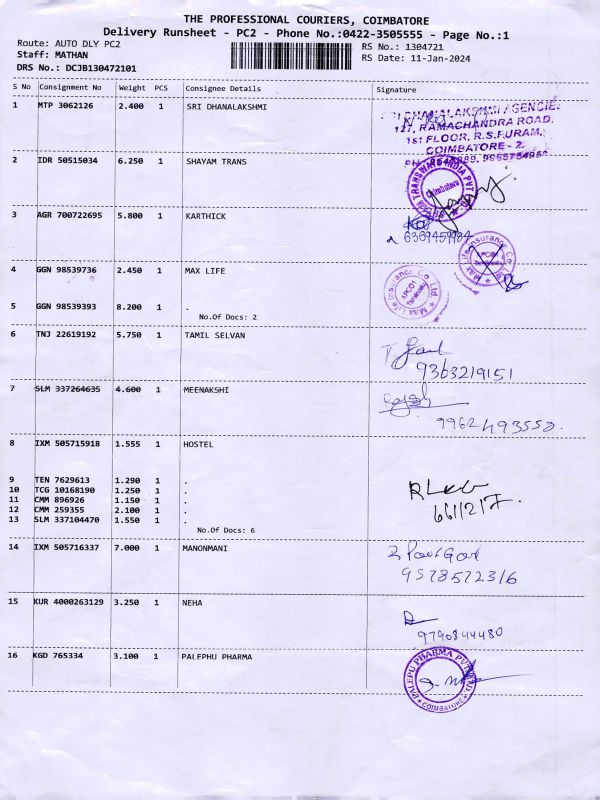 THE PROFESSIONAL COURIERS, COIMBATORE
Delivery Runsheet - PC2 - Phone No.:0422-3505555 - Page No.:1
Route: AUTO DLY PC2 RS No.: 1304721
Staff: MATHAN RS Date: 11-Jan-2024
DRS No.: DCJB130472101
S No Consignment No Weight PCS Consignee Details Signature
1 MTP 3062126 2.400 1 SRI DHANALAKSHMI
DHANALAKSHMI AGENCIE
127, RAMACHANDRA ROAD,
1st FLOOR, R.S.PURAM,
COIMBATORE - 2.
2 IDR 50515034 6.250 1 SHAYAM TRANS
TRANSWAYS INDIA PVT
Coimbatore
3 AGR 700722695 5.800 1 KARTHICK
6369459984
4 GGN 98539736 2.450 1 MAX LIFE
Max Life Insurance Co Ltd.
Max Life Insurance Co. Ltd.
5 GGN 98539393 8.200 1 .
No.Of Docs: 2
6 TNJ 22619192 5.750 1 TAMIL SELVAN
9363219151
7 SLM 337264635 4.600 1 MEENAKSHI
9962493550.
8 IXM 505715918 1.555 1 HOSTEL
9 TEN 7629613 1.290 1 .
10 TCG 10168190 1.250 1 .
11 CMM 896926 1.150 1 .
12 CMM 259355 2.100 1 .
13 SLM 337104470 1.550 1 .
No.Of Docs: 6
14 IXM 505716337 7.000 1 MANONMANI
9578572316
15 KUR 4000263129 3.250 1 NEHA
9790844480
16 KGD 765334 3.100 1 PALEPHU PHARMA
PALEPU PHARMA PVT LTD
COIMBATORE